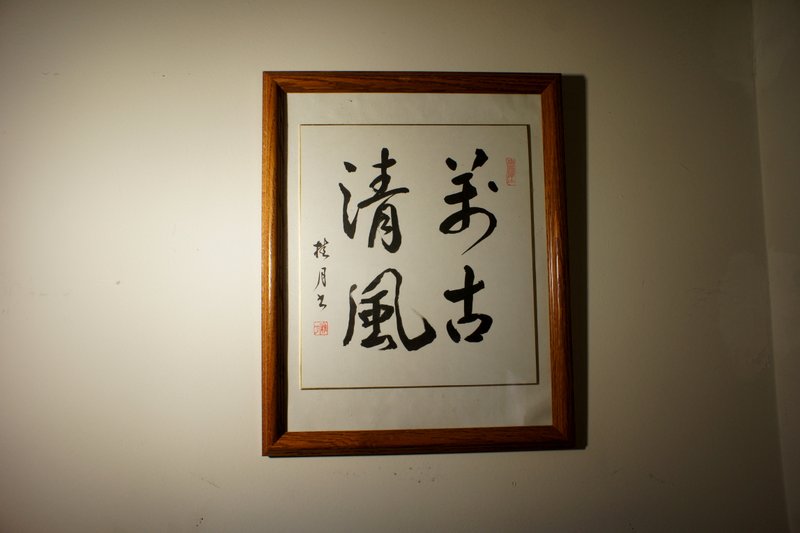 萬古
清風
桂月書